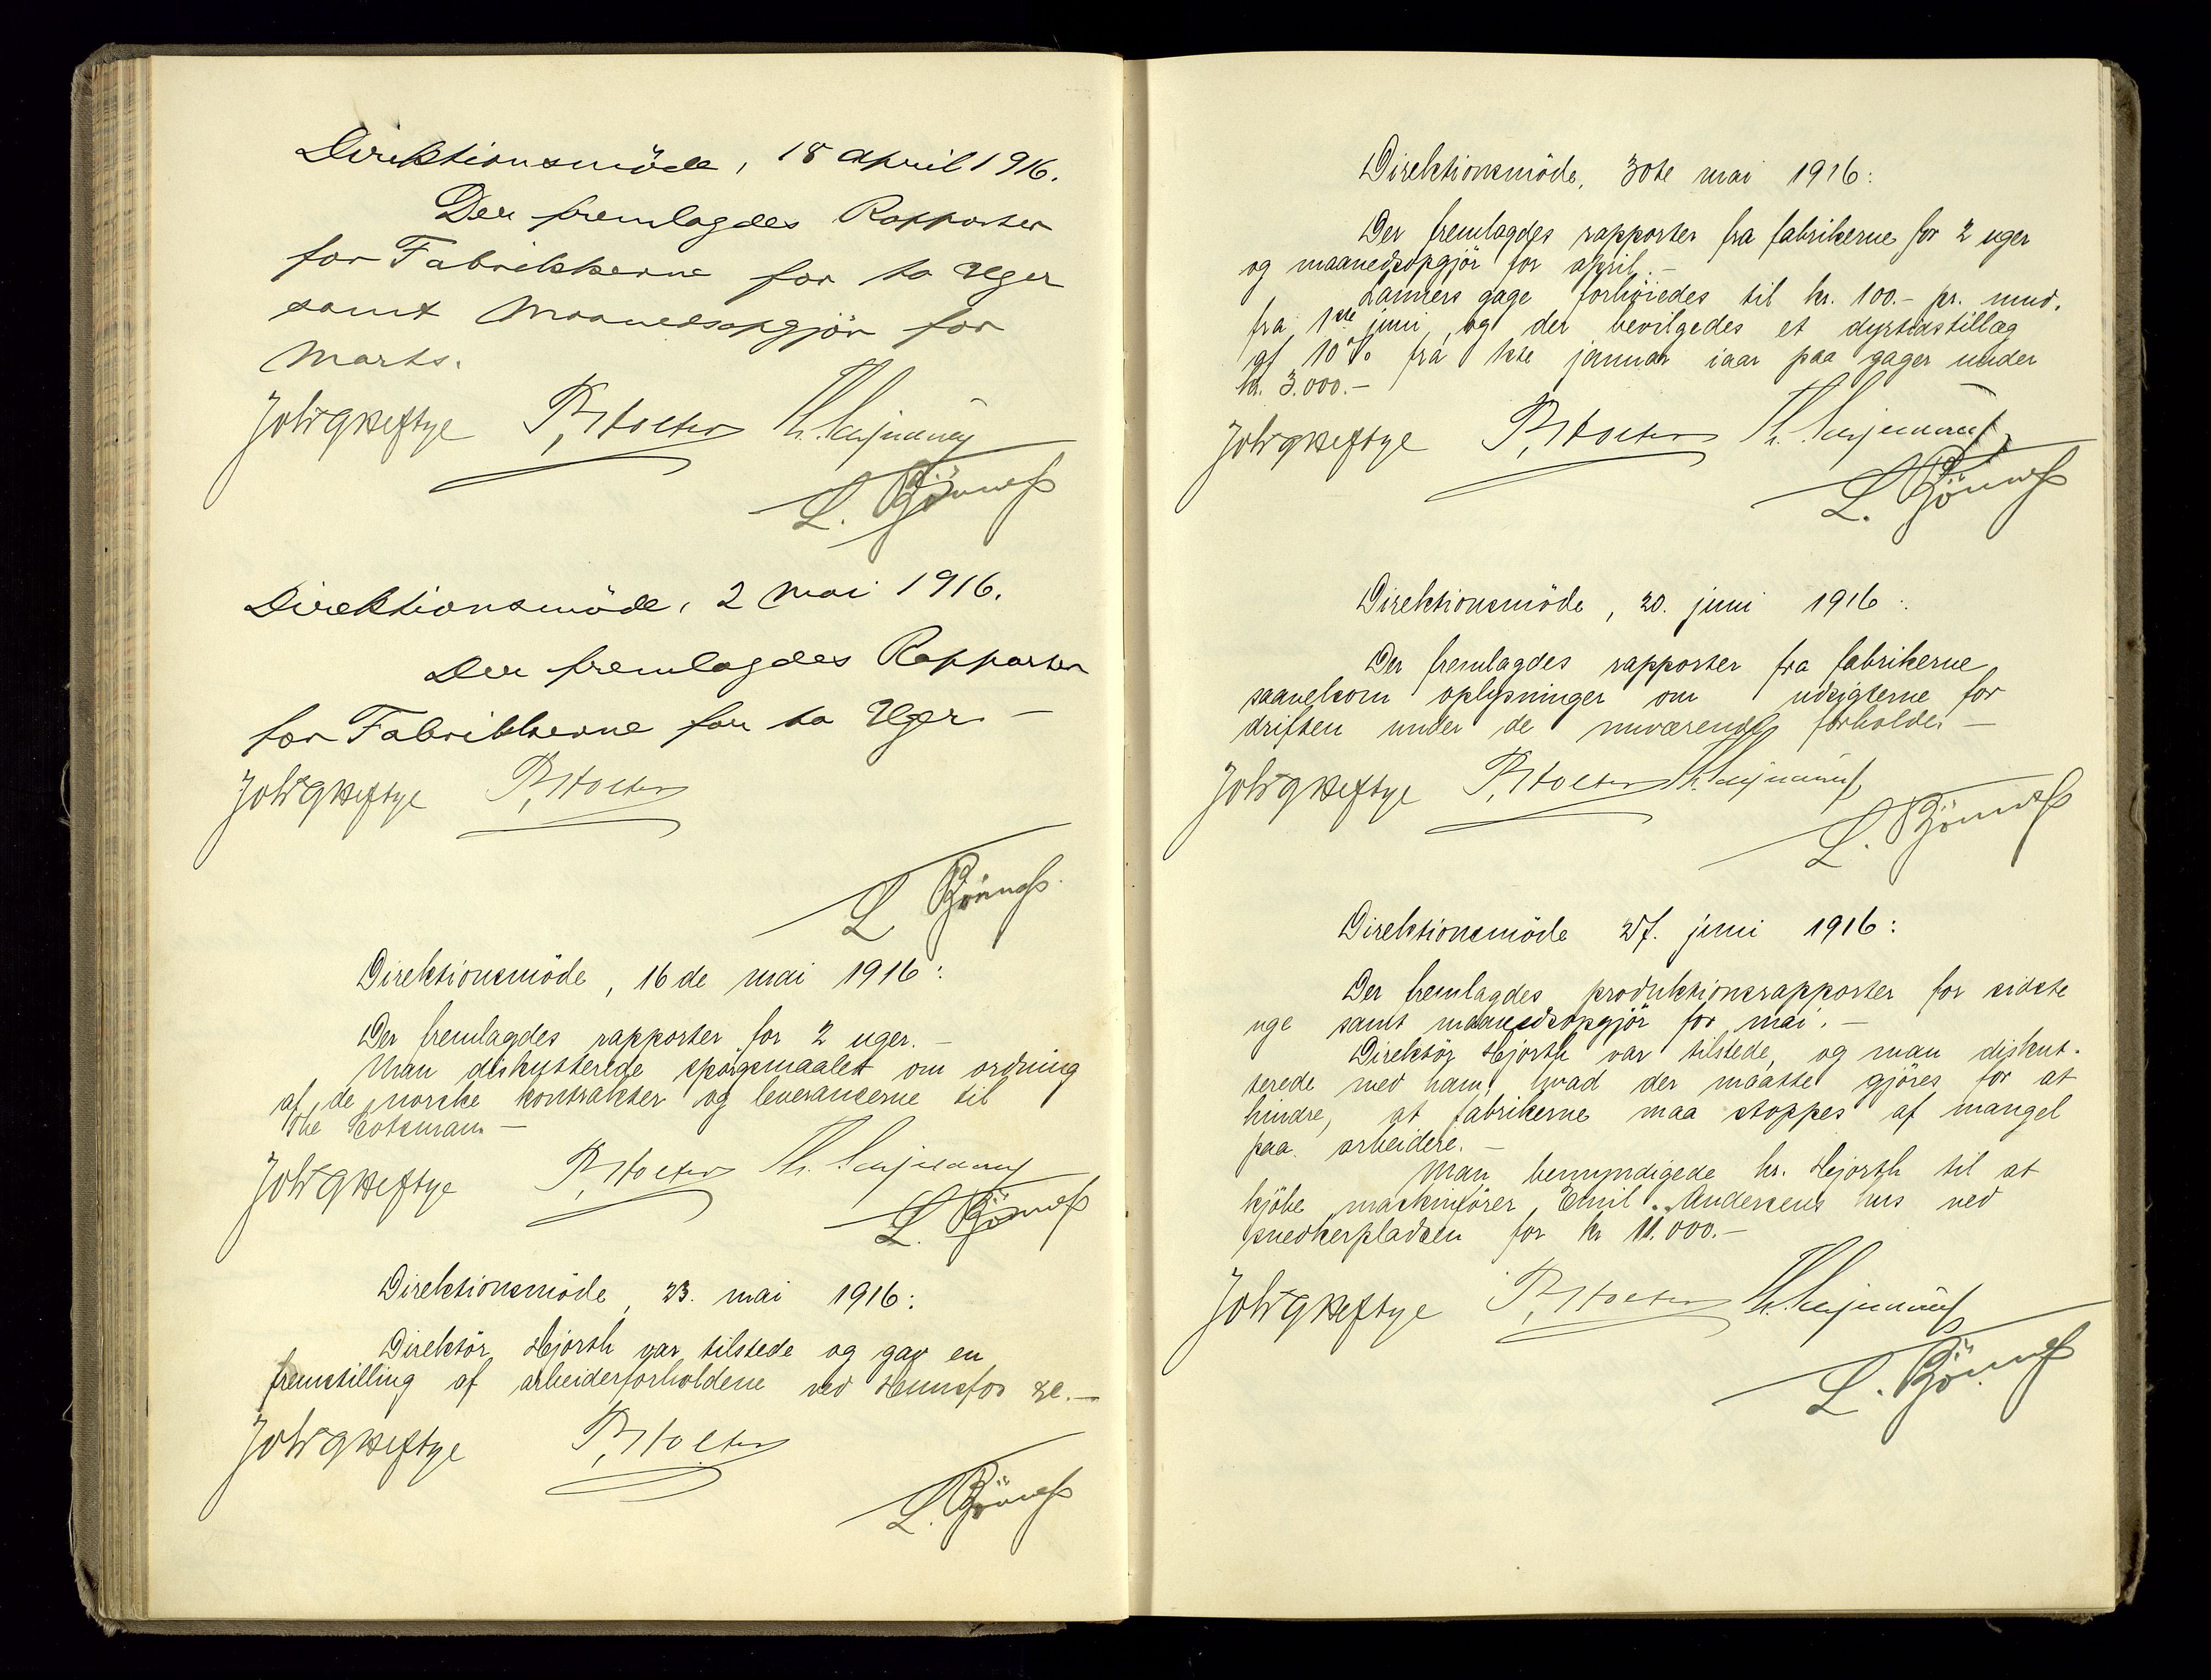 Direktionsmöde, 18 April 1916.
Der fremlagdes Rapporter
for Fabrikkerne for to Uger
samt Maanedsopgjör for
Marts.
Joh T Heftye P. Holter Th.
L.
Direktionsmöde, 2 Mai 1916.
Der fremlagdes Rapporter
for Fabrikkerne for to Uger. —
Joh T Heftye P. Holter
L
Direktionsmöde, 16de mai 1916:
Der fremlagdes rapporter for 2 uger. —
Man diskutterede spörgsmaalet om ordning
af de norske kontrakter og leverancerne til
The Scotsman. —
Joh T Heftye P. Holter Th.
L.
Direktionsmöde, 23. mai 1916:
Direktör Hjorth var tilstede og gav en
fremstilling af arbeiderforholdene ved Hunsfos
Joh T Heftye P. Holter
L.
Direktionsmöde, 30te mai 1916:
Der fremlagdes rapporter fra fabrikerne for 2 uger
og maanedsopgjör for april. —
gage forhöiedes til kr. 100.- pr. mnd.
fra 1ste juni, og der bevilgedes et dyrtidstillæg
af 10% fra 1ste januar iaar paa gager under
kr. 3.000.—
Joh T Heftye P. Holter Th.
L.
Direktionsmöde, 20. juni 1916:
Der fremlagdes rapporter fra fabrikerne
saavelsom oplysninger om udsigterne for
driften under de nuværende forholde. —
Joh T Heftye P. Holter Th.
L.
Direktionsmöde 27. juni 1916:
Der fremlagdes produktionsrapporter for sidste
uge samt maanedsopgjör for mai. —
Direktör Hjorth var tilstede, og man diskut-
terede med ham, hvad der maatte gjöres for at
hindre, at fabrikerne maa stoppes af mangel
paa arbeidere. —
Man bemyndigede hr. Hjorth til at
kjöbe maskinförer Emil Andersens hus ved
snedkerpladsen for kr 11.000.—
Joh T Heftye P. Holter Th.
L.